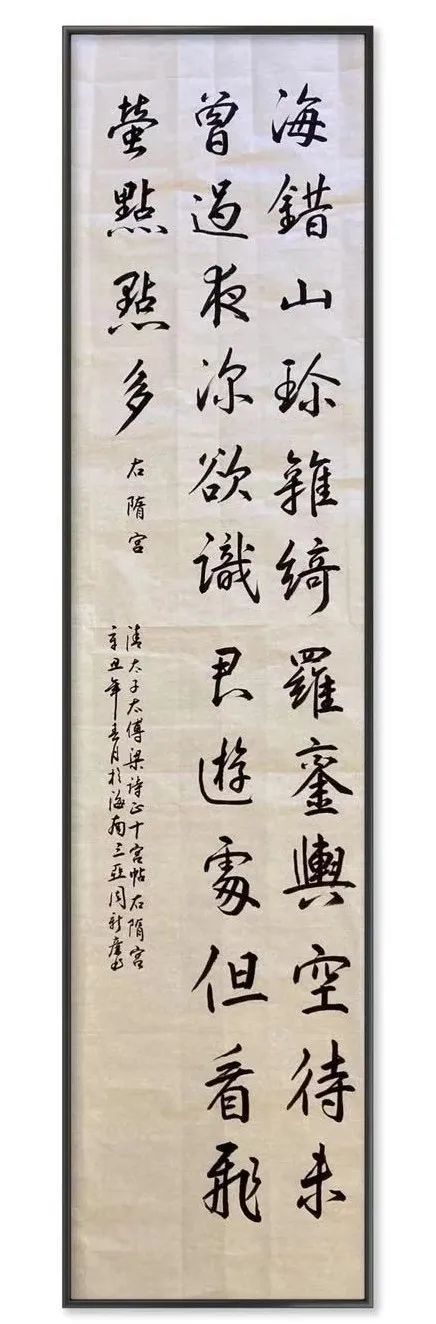 海錯山珍雜綺羅鑾輿空待未
曾過夜深欲識君遊處但看飛
螢點點多 右隋宮
清太子太傅梁诗正十宫帖右隋宫
辛丑年春月於海南三亞闫新